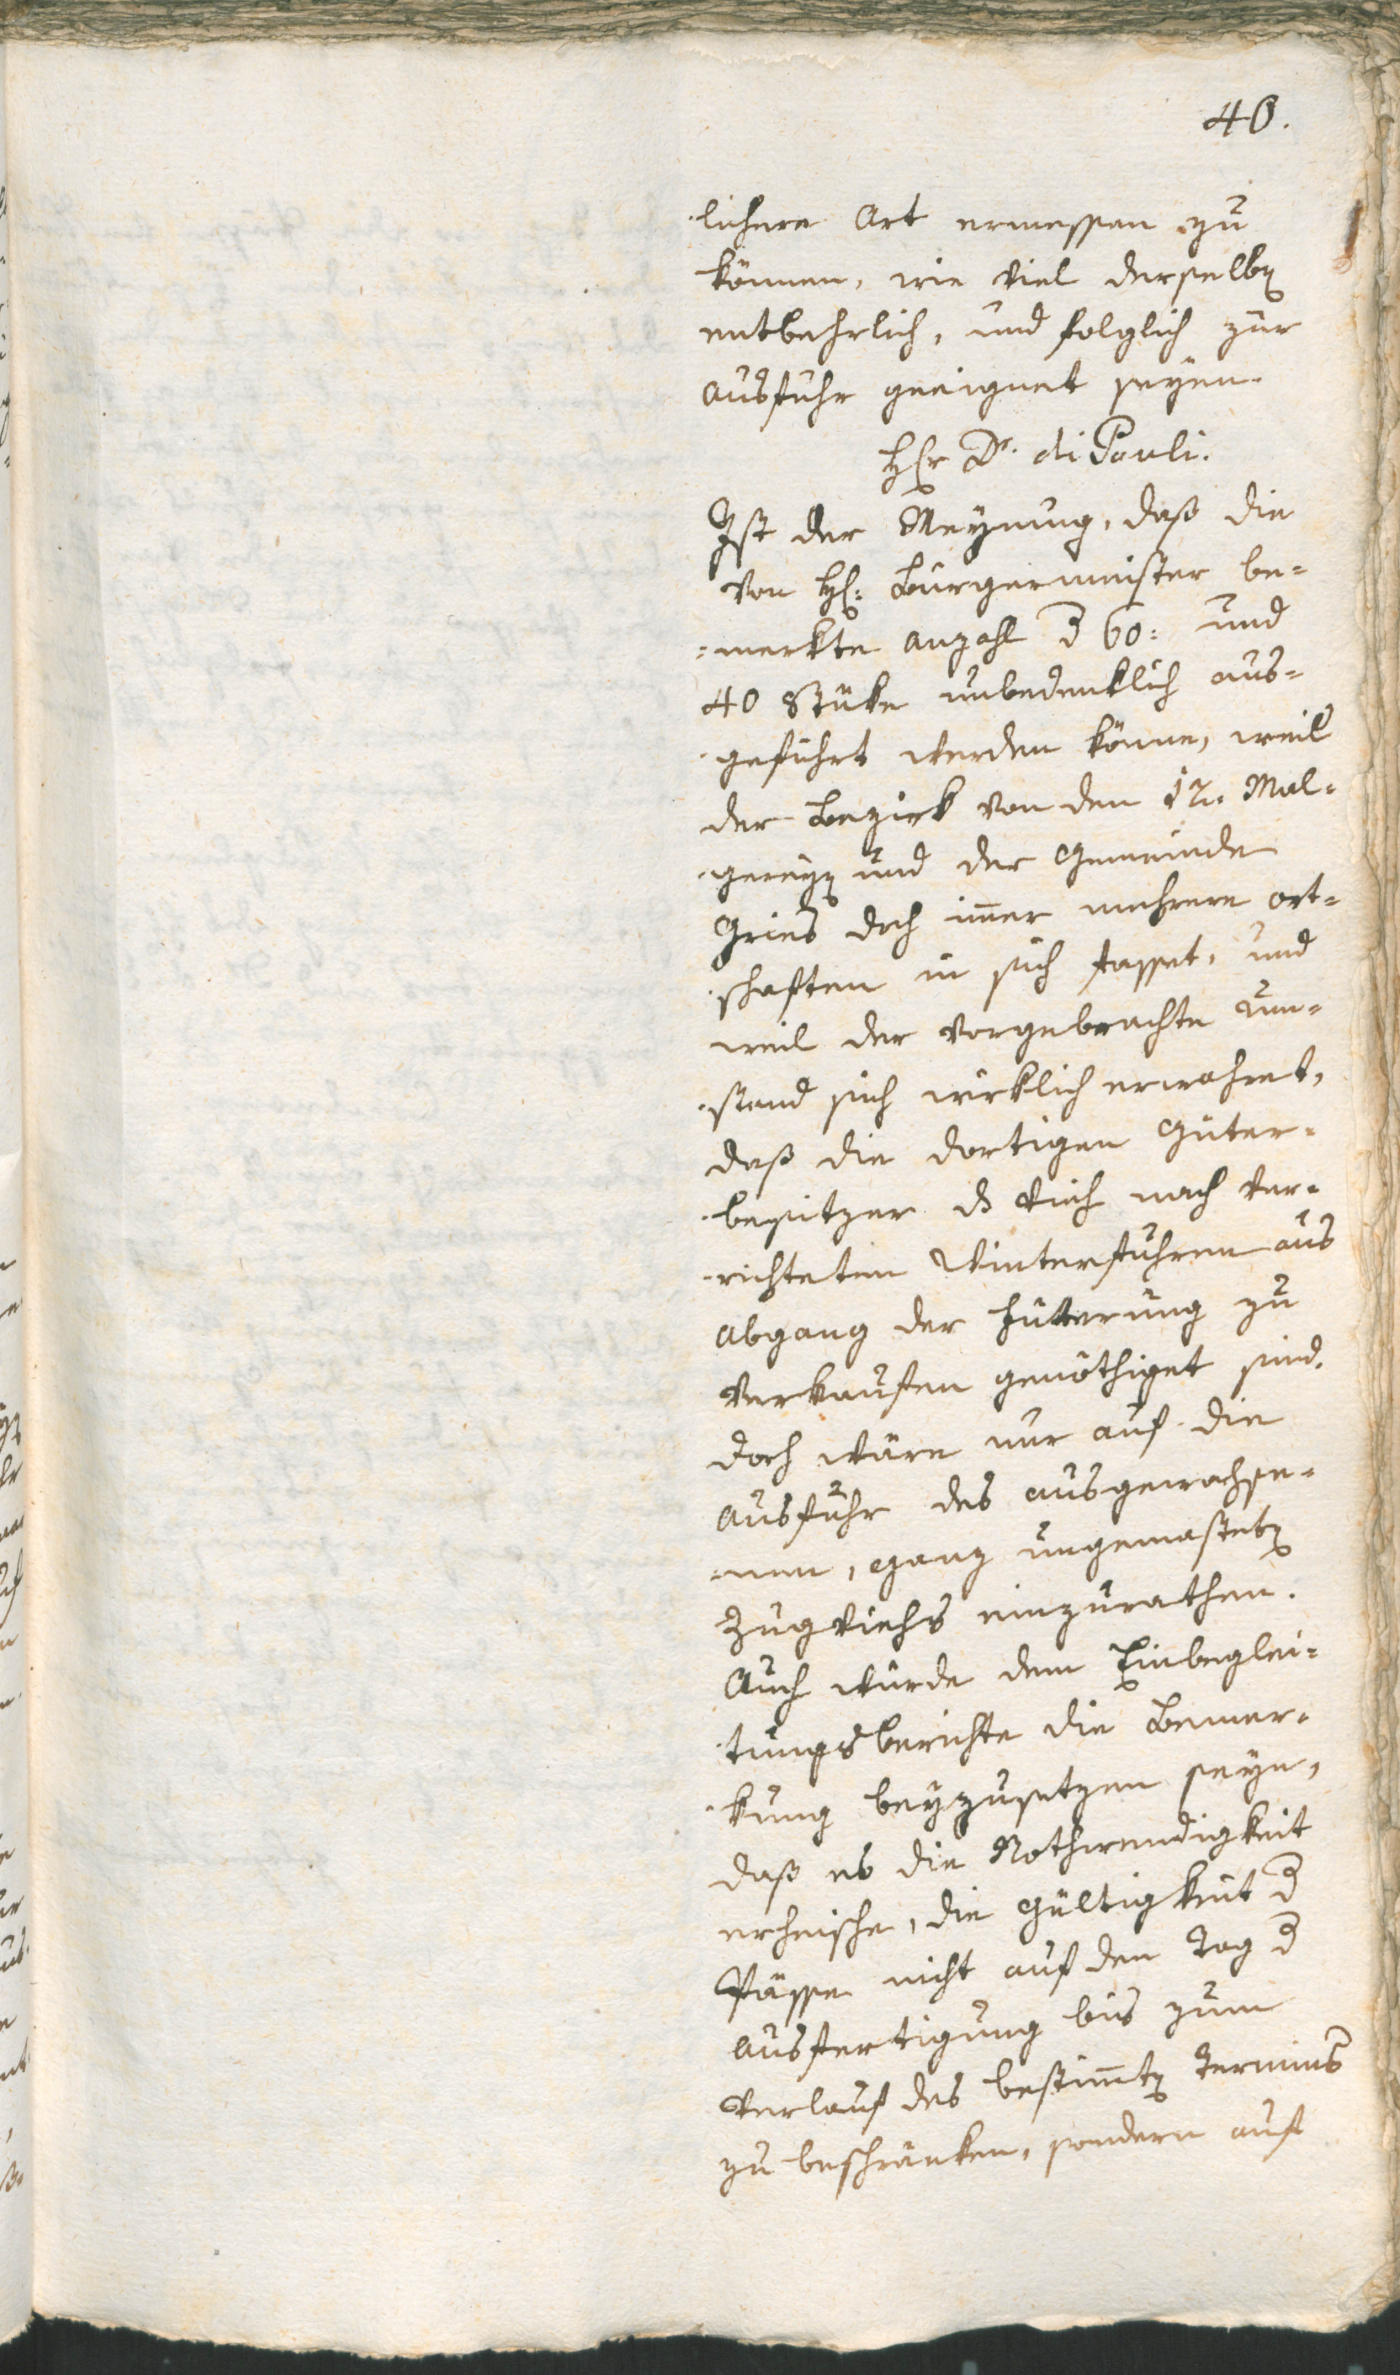 40.
lichere Art ermessen zu
können, wie viel derselbe͞n
entbehrlich, und folglich zur
Ausfuhr geeignet seyen.
H͞r Dr. di Pauli.
Ist der Meynung, daß die
von H: Burgermeister be=
=merkte Anzahl d 60: und
40 Stüke unbedenklich aus=
geführt werden könne, weil
der Bezirk von den 12. Mal=
greye͞n und der Gemeinde
Gries doch im̅er mehrere Ort=
schaften in sich fasset, und
weil der vorgebrachte Um=
stand sich wirklich erwahret,
daß die dortigen Güter=
besitzer ds Vieh nach ver=
richteten Winterfuhren aus
Abgang der Fütterung zu
verkaufen genöthiget sind.
Doch wäre nur auf die
Ausfuhr des ausgewachse=
nen, ganz ungemastete͞n
Zugviehs einzurathen.
Auch würde dem Einbeglei=
tungsberichte die Bemer=
kung beyzusetzen seyn,
daß es die Nothwendigkeit
erheische, die Gültigkeit d
Pässe nicht auf den Tag d
Ausfertigung bis zum
Verlauf des bestim̅te͞n Termins
zu beschränken, sondern auf